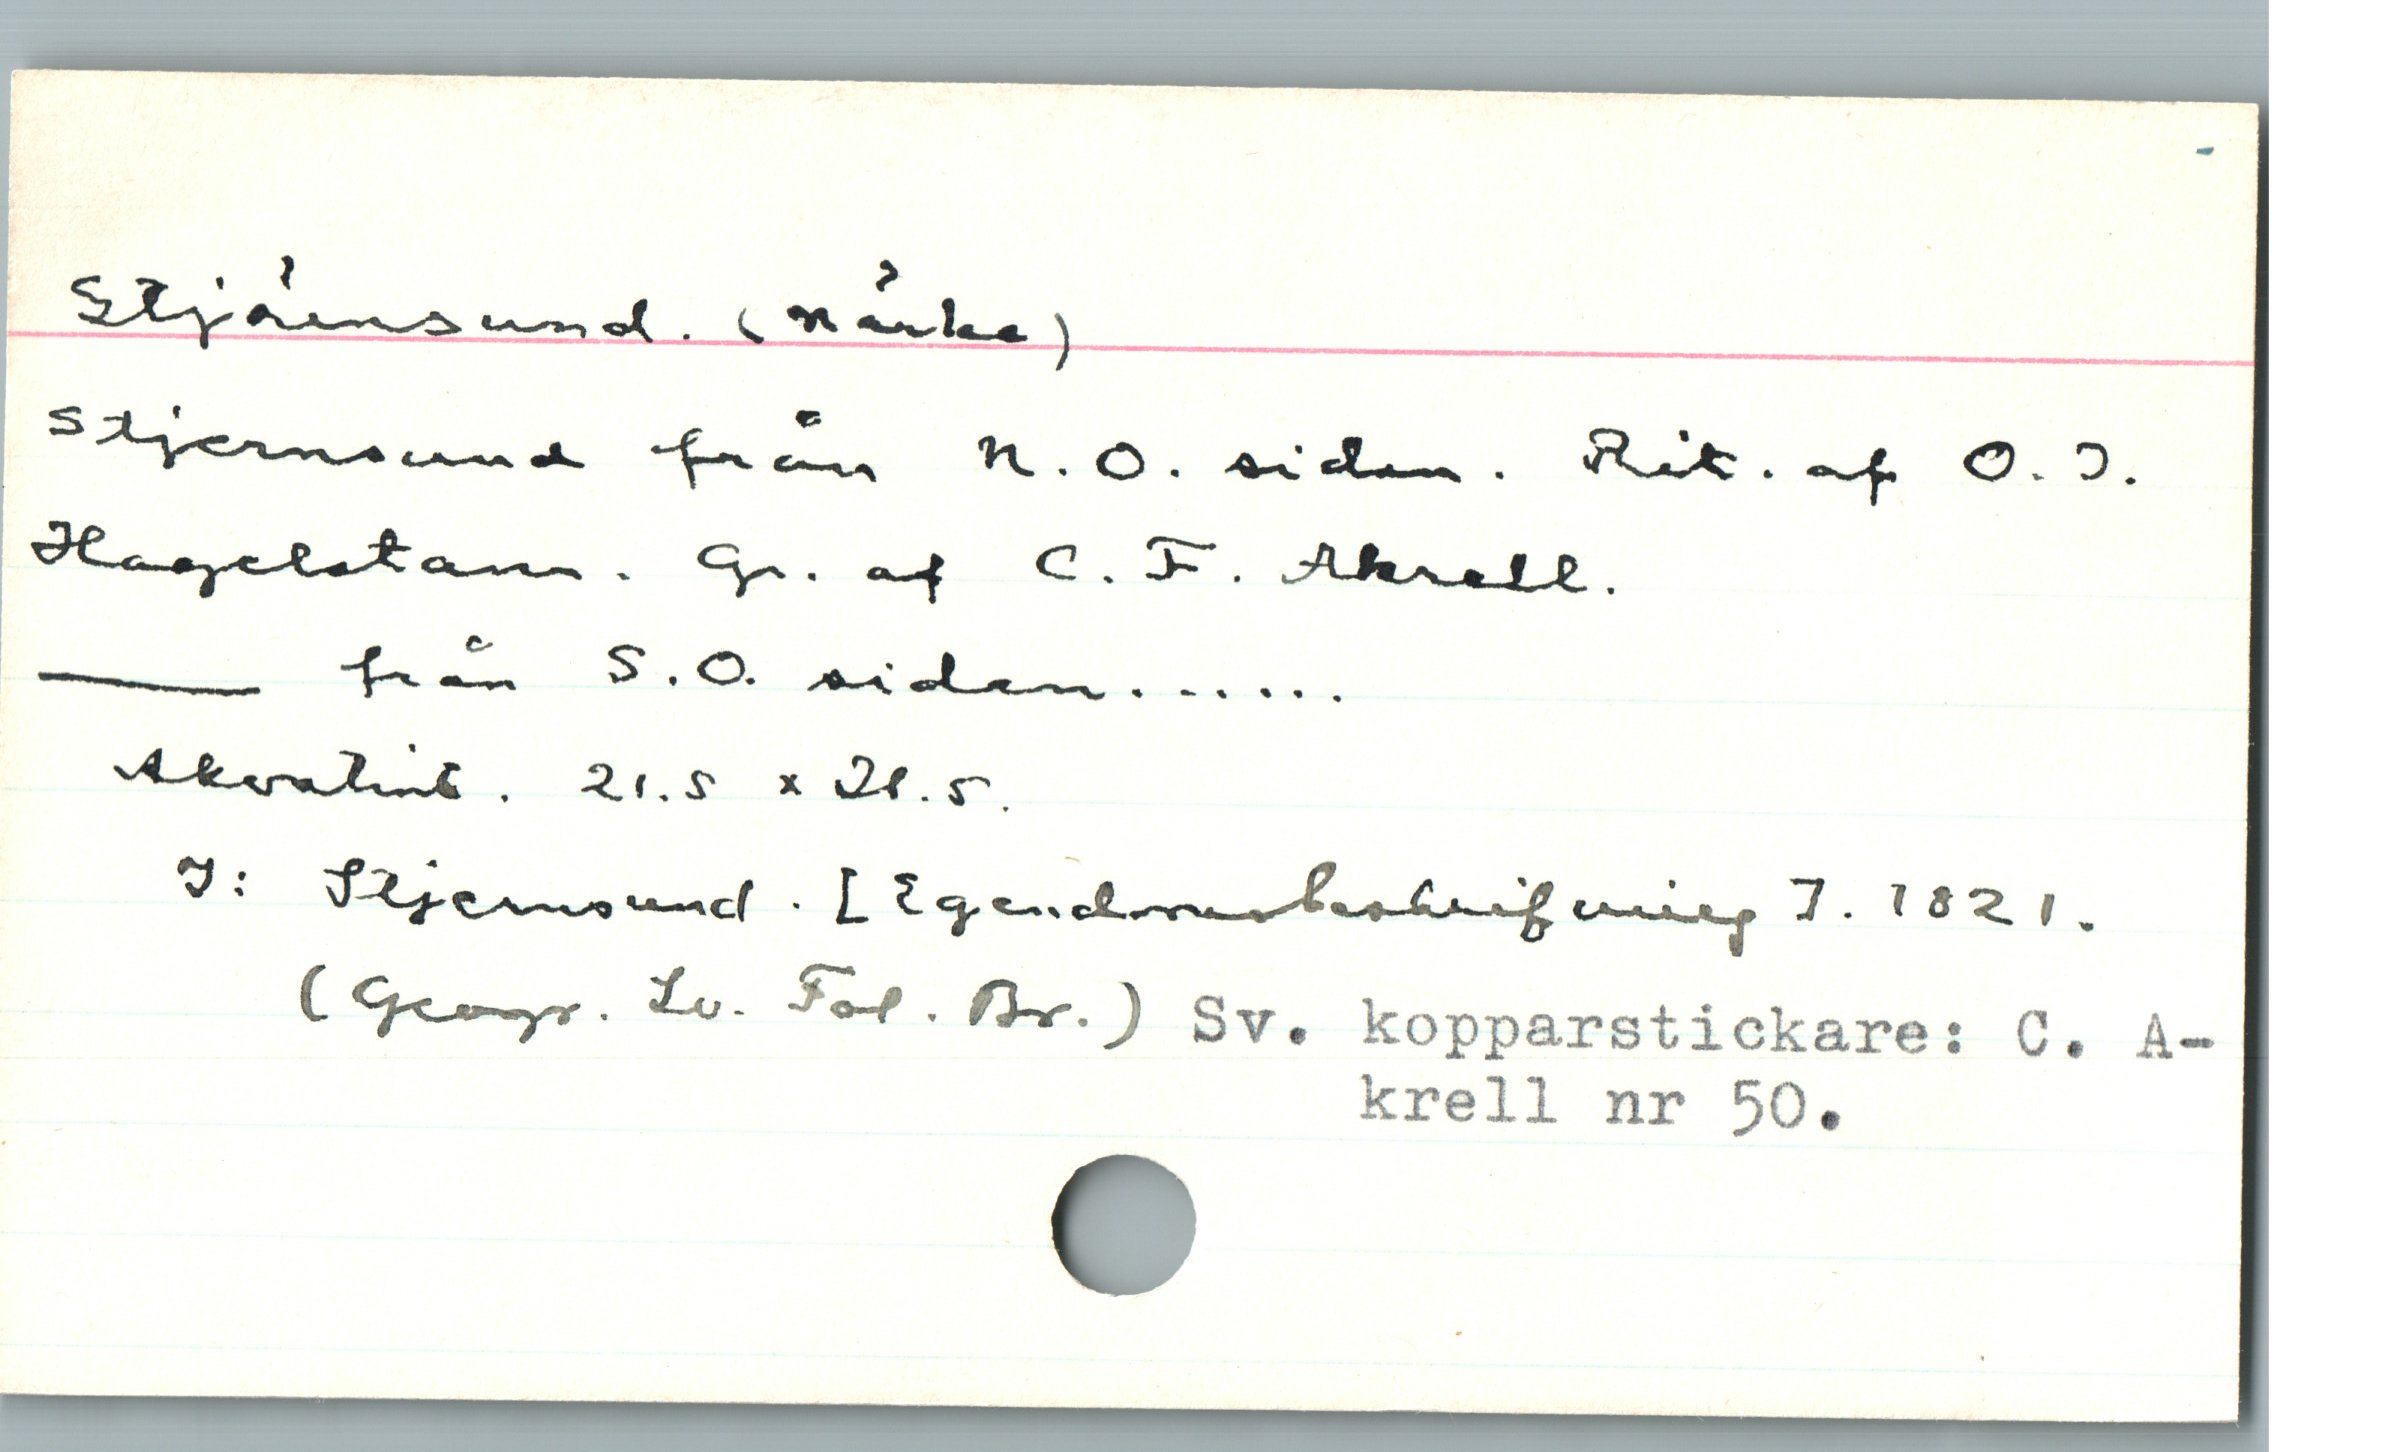 Stjärnsund. (Närke)
Stjernsund från N.O. siden. Rit. af O.J.
Hagelstam. Gr. af C.F. Akrell.
——— från S.O. siden......
Akvatint. 21.5 x 31.5.
I: Stjernsund. [Egendomsbeskrifning]. 1821.
(Geogr. Sv. Fol. Br.) Sv. kopparstickare: C. A-
krell nr 50.